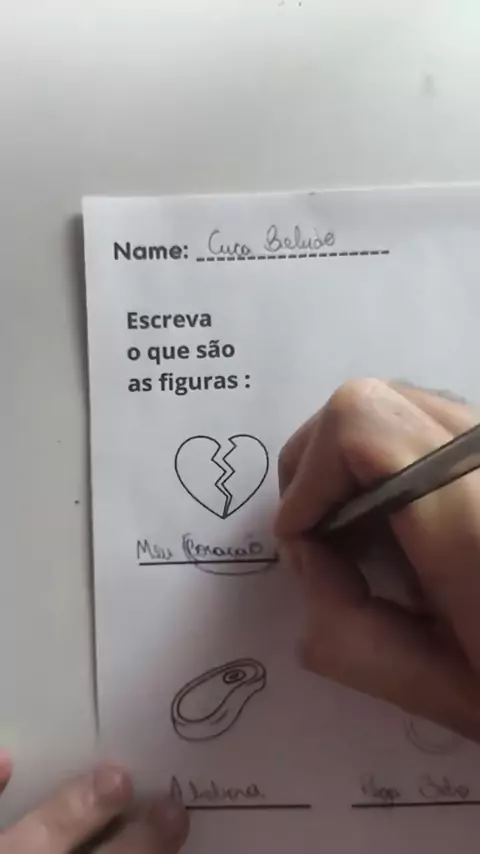 Name: Cuca Beludo
Escreva
o que são
as figuras :
Meu Coração